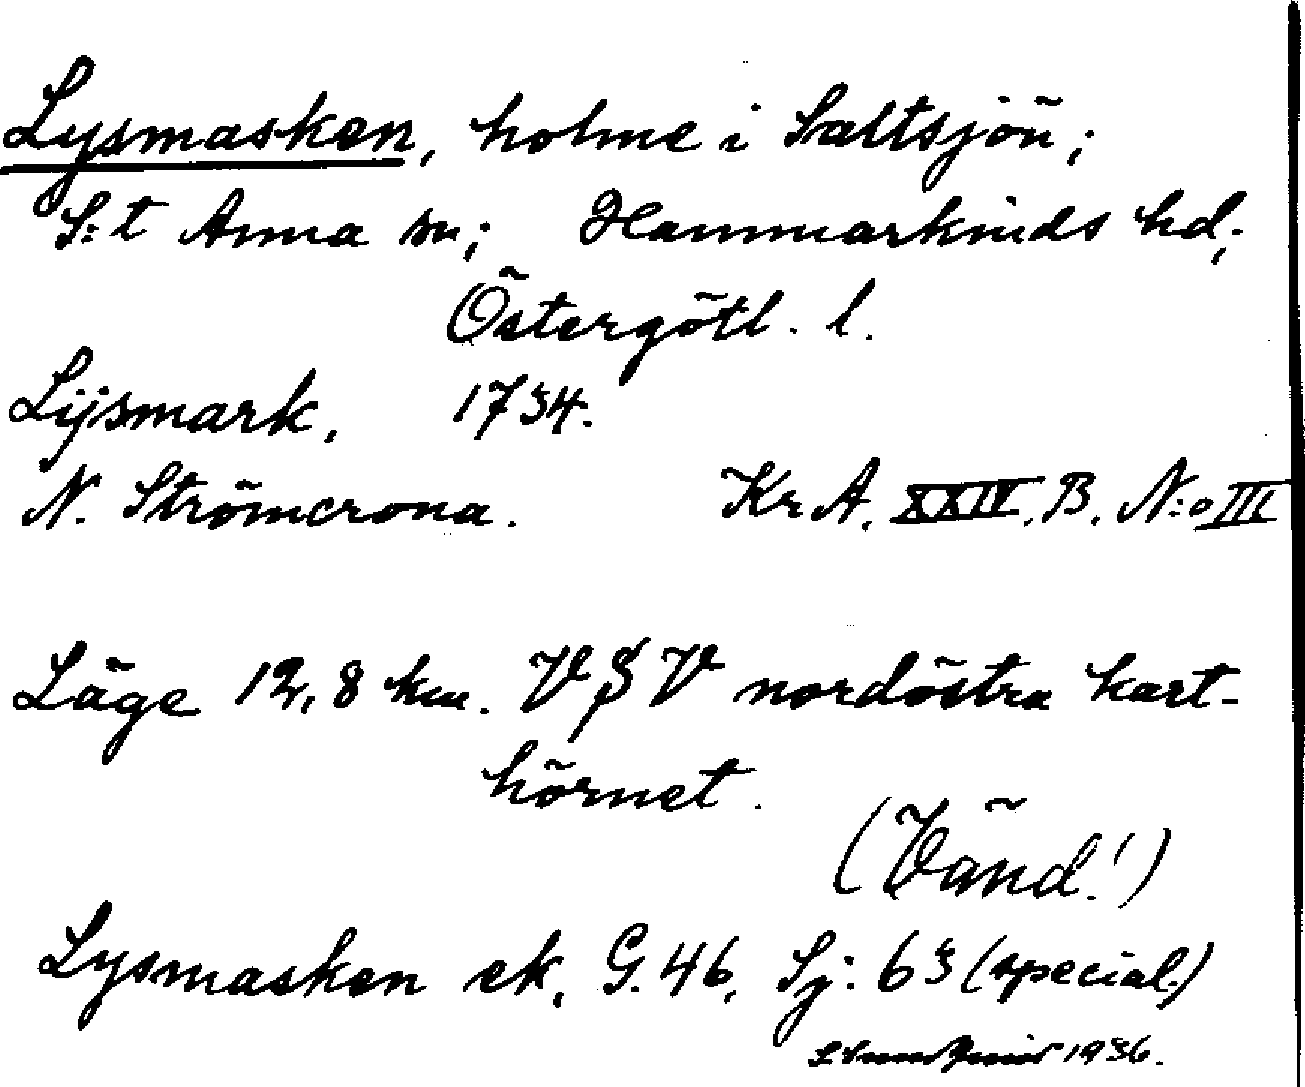 Lysmasken, holme i Saltsjön;
S:t Anna sn; Hammarkinds hd;
Östergötl. l.
Lijsmark. 1734.
N. Strömcrona. Kr. A. XXIV. B. N:o III
Läge 12,8 km. VSV nordöstra kart-
hörnet.
(Vänd!)
Lysmasken ek. G. 46, Sj: 63 (special.)
1936.